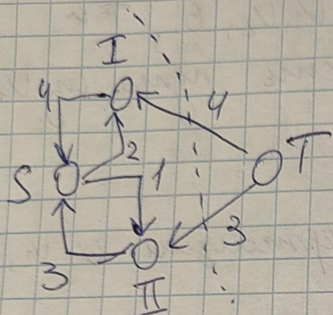 I
4 4
2
S 1 T
3 3
II